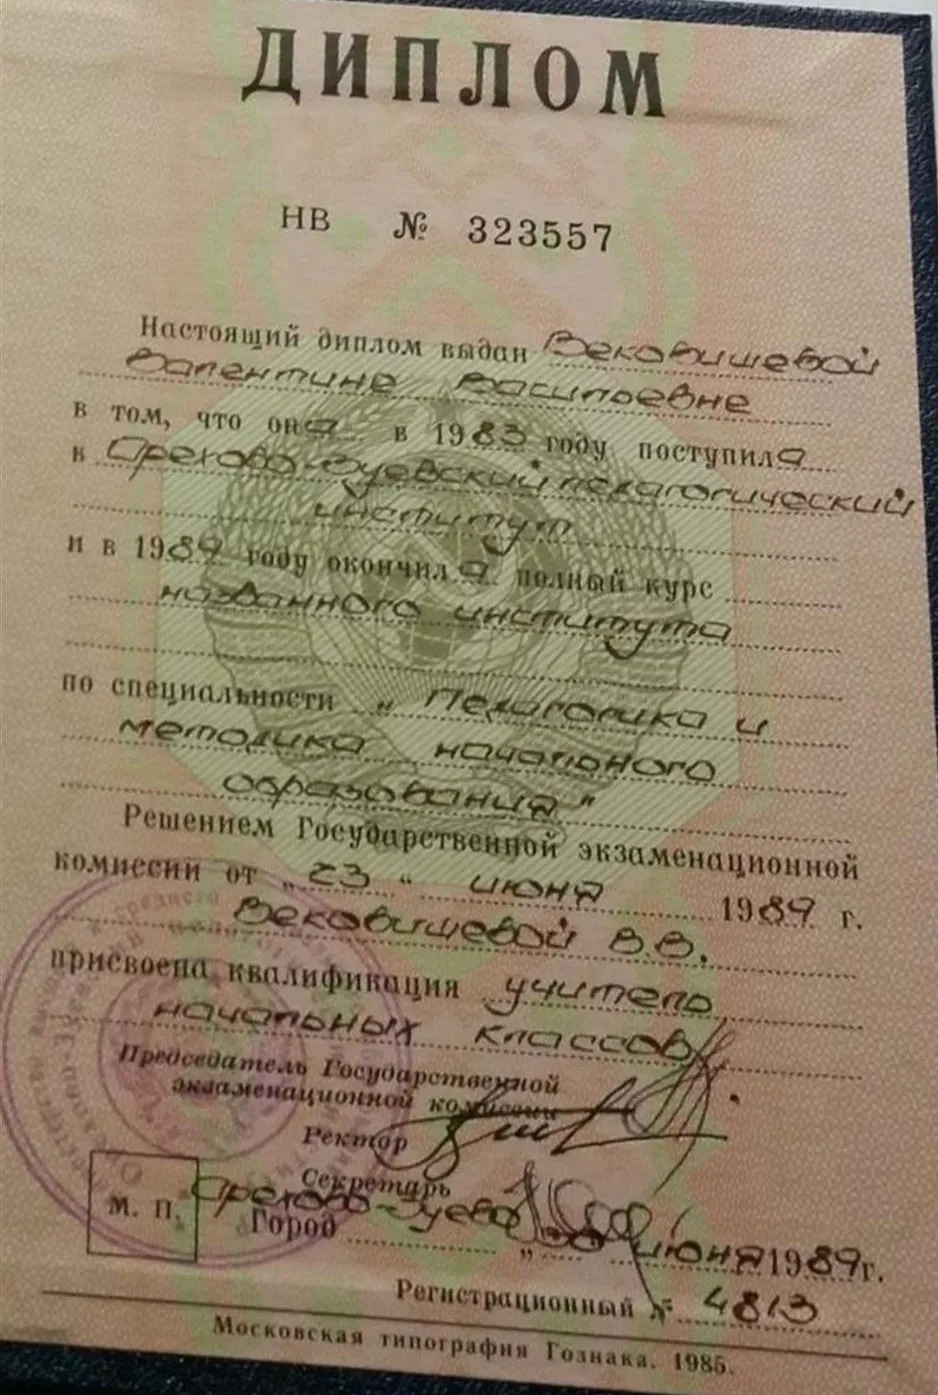 ДИПЛОМ
НВ № 323557
Настоящий диплом выдан Вековишевой
Валентине Васильевне
в том, что она в 1983 году поступила
в Орехово-Зуевский педагогический
институт
и в 1989 году окончила полный курс
названного института
по специальности „Педагогика и
методика начального
образования"
Решением Государственной экзаменационной
комиссии от „23" июня 1989 г.
Вековишевой В.В.
присвоена квалификация учитель
начальных классов
Председатель Государственной
экзаменационной комиссии
Ректор
Секретарь
М. П. Город Орехово-Зуево июня 1989 г.
Регистрационный № 4813
Московская типография Гознака. 1985.